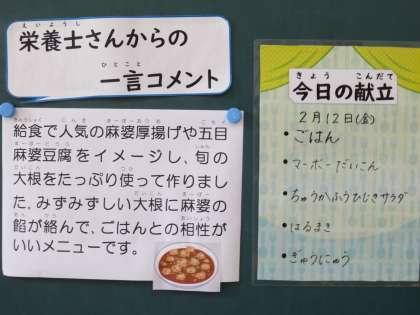 栄養士さんからの
一言コメント
給食で人気の麻婆厚揚げや五目
麻婆豆腐をイメージし、旬の
大根をたっぷり使って作りまし
た。みずみずしい大根に麻婆の
餡が絡んで、ごはんとの相性が
いいメニューです。
今日の献立
2月12日(金)
・ごはん
・マーボーだいこん
・ちゅうかふうひじきサラダ
・はるまき
・ぎゅうにゅう